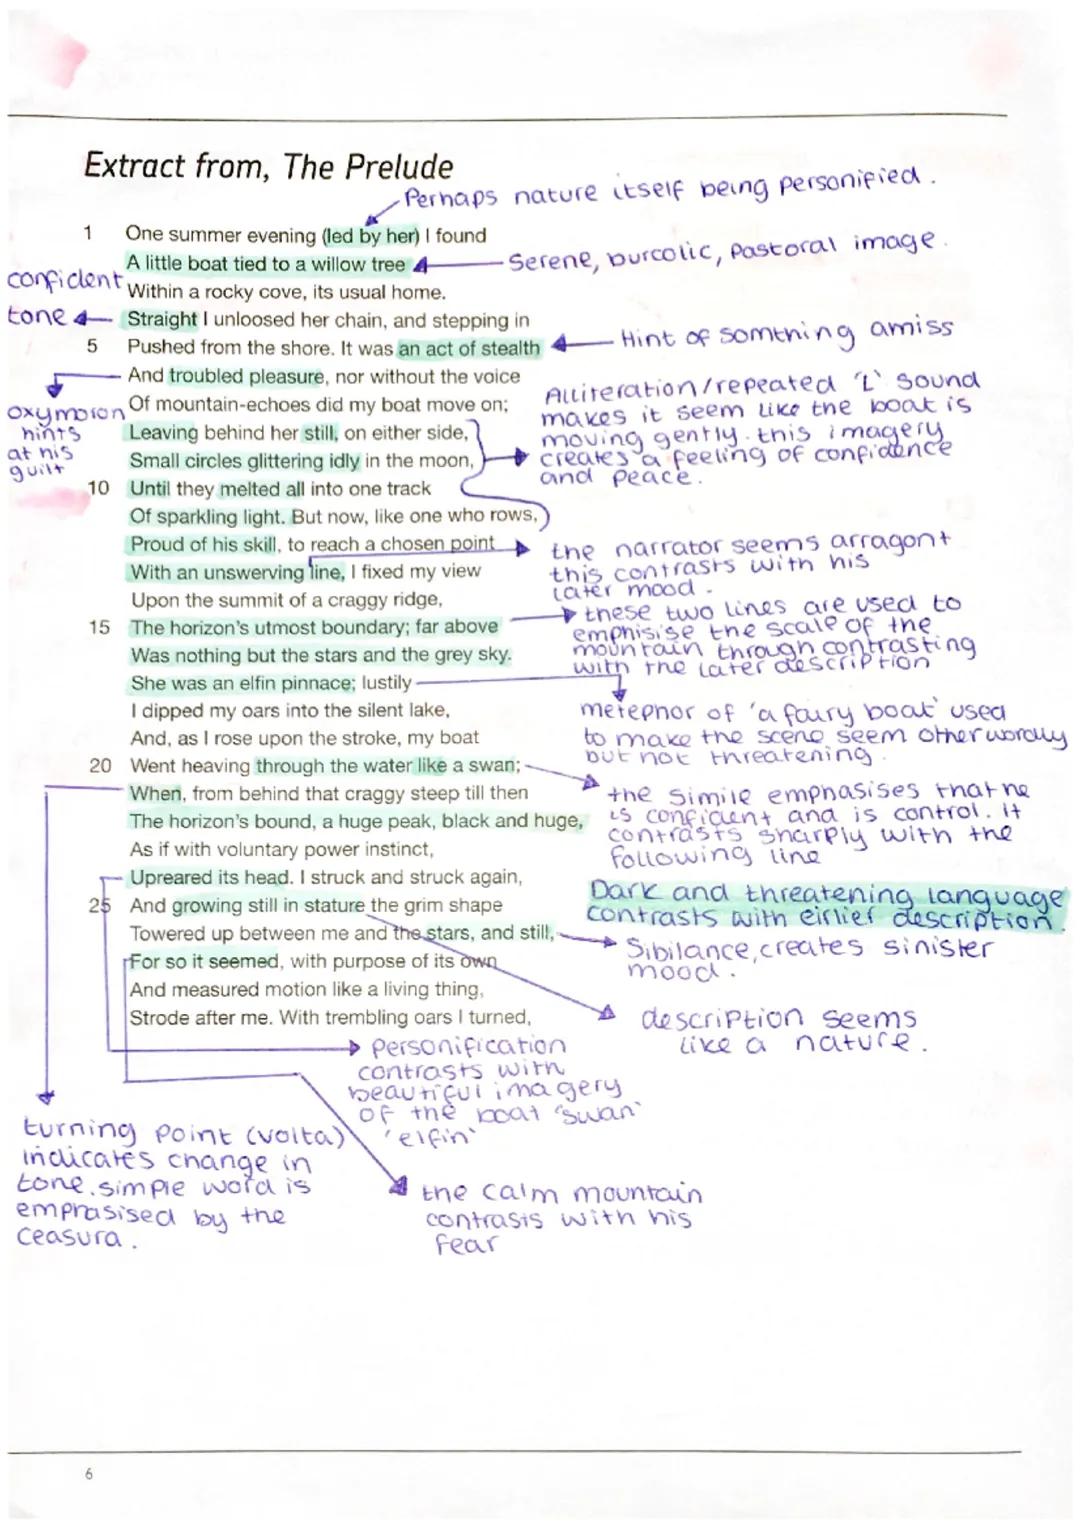 Extract from, The Prelude
Perhaps nature itself being personified.
1 One summer evening (led by her) I found
A little boat tied to a willow tree
Serene, burcolic, Pastoral image.
Within a rocky cove, its usual home.
confident
tone
Straight I unloosed her chain, and stepping in
5 Pushed from the shore. It was an act of stealth
Hint of somthing amiss
And troubled pleasure, nor without the voice
Of mountain-echoes did my boat move on;
oxymoron
hints
at his
guilt
Leaving behind her still, on either side,
Small circles glittering idly in the moon,
Alliteration/repeated 'L' sound
makes it seem like the boat is
moving gently. this imagery
creates a feeling of confidence
and peace.
10 Until they melted all into one track
Of sparkling light. But now, like one who rows,
Proud of his skill, to reach a chosen point
With an unswerving line, I fixed my view
the narrator seems arragont
this contrasts with his
later mood.
Upon the summit of a craggy ridge,
15 The horizon's utmost boundary; far above
Was nothing but the stars and the grey sky.
these two lines are used to
emphisise the scale of the
mountain through contrasting
with the later description
She was an elfin pinnace; lustily
I dipped my oars into the silent lake,
And, as I rose upon the stroke, my boat
metephor of 'a fairy boat' used
to make the scene seem otherwordly
but not threatening.
20 Went heaving through the water like a swan;
When, from behind that craggy steep till then
The horizon's bound, a huge peak, black and huge,
As if with voluntary power instinct,
the simile emphasises that he
is confident and is control. it
contrasts sharply with the
following line
Upreared its head. I struck and struck again,
25 And growing still in stature the grim shape
Dark and threatening language
contrasts with eirlier description.
Towered up between me and the stars, and still,
Sibilance, creates sinister
mood.
For so it seemed, with purpose of its own
And measured motion like a living thing,
Strode after me. With trembling oars I turned,
description seems
like a nature.
personification
contrasts with
beautiful imagery
of the boat 'swan'
'elfin'
turning point (volta)
indicates change in
tone. simple word is
emprasised by the
ceasura.
the calm mountain
contrasts with his
fear
6